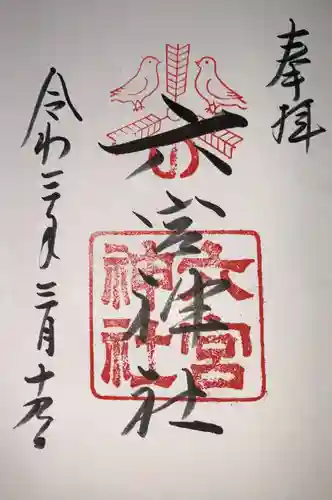 奉拝
六宮神社
六宮
神社
令和三年三月十九日